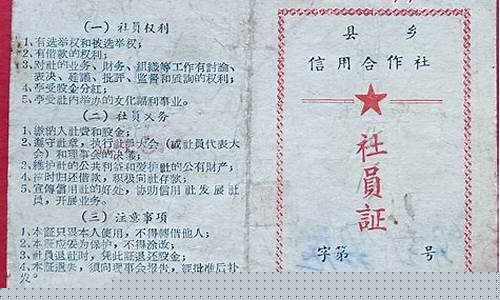 (一) 社員权利
1、有选举权和被选举权;
2、有借款的权利;
3、对社的业务、財务、組織等工作有討論、
表决、建議、批评、监督和质詢的权利;
4、享受股金分紅;
5、享受社內举办的文化福利事业。
(二) 社員义务
1、缴纳入社費和股金;
2、遵守社章,执行社員大会 (或社員代表大
会) 和理事会的决議;
3、維护社的公共利益和爱护社的公有財产;
4、按时归还借款,积极向社存款;
5、宣傳信用社的好处,协助信用社发展社
員,开展业务。
(三) 注意事項
1、本証只限本人使用,不得轉借他人;
2、本証应妥为保护,不得涂改;
3、社員退社时,凭此証退还股金;
4、本証遗失,須向理事会报告,經批准后补
发。
县 乡
信用合作社
社員証
字第 号